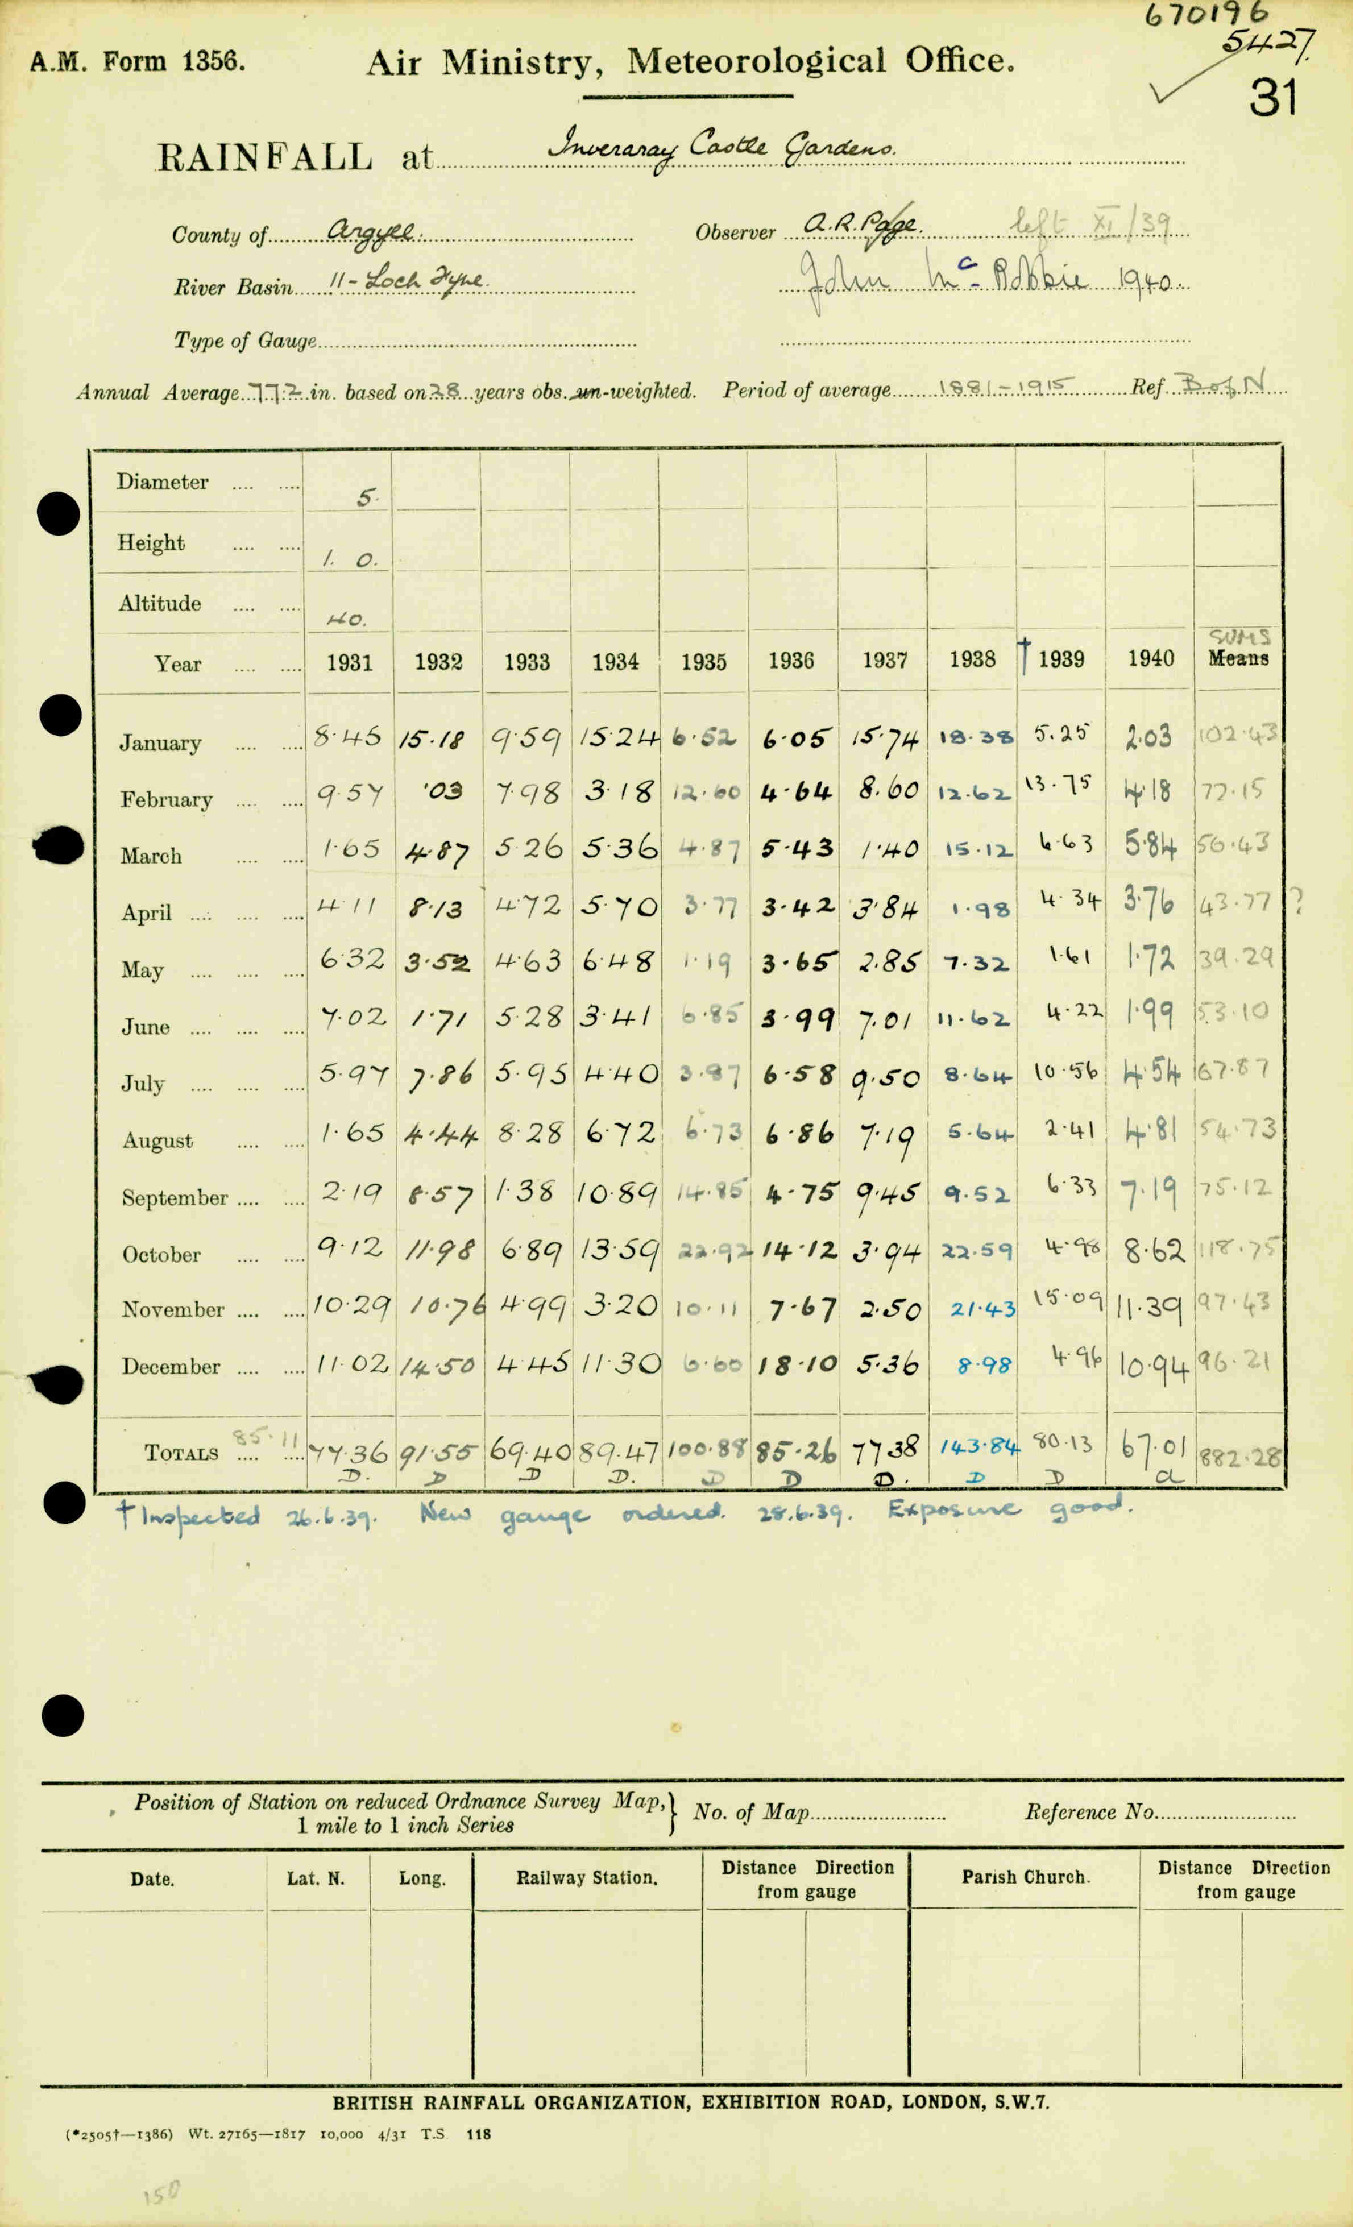 670196
5427.
A.M. Form 1356. Air Ministry, Meteorological Office.
31
RAINFALL at Inveraray Castle Gardens.
County of Argyll. Observer A.R. Page. left XI/39
River Basin 11 - Loch Fyne. John McRobbie 1940.
Type of Gauge
Annual Average 77.2 in. based on 28 years obs. un-weighted. Period of average 1881-1915 Ref. B of N
Diameter 5.
Height 1. 0.
Altitude 40.
SUMS
Year 1931 1932 1933 1934 1935 1936 1937 1938 † 1939 1940 Means
January 8.45 15.18 9.59 15.24 6.52 6.05 15.74 18.38 5.25 2.03 102.43
February 9.57 .03 7.98 3.18 12.60 4.64 8.60 12.62 13.75 4.18 77.15
March 1.65 4.87 5.26 5.36 4.87 5.43 1.40 15.12 6.63 5.84 56.43
April 4.11 8.13 4.72 5.70 3.77 3.42 3.84 1.98 4.34 3.76 43.77 ?
May 6.32 3.52 4.63 6.48 1.19 3.65 2.85 7.32 1.61 1.72 39.29
June 7.02 1.71 5.28 3.41 6.85 3.99 7.01 11.62 4.22 1.99 53.10
July 5.97 7.86 5.95 4.40 3.87 6.58 9.50 8.64 10.56 4.54 67.87
August 1.65 4.44 8.28 6.72 6.73 6.86 7.19 5.64 2.41 4.81 54.73
September 2.19 8.57 1.38 10.89 14.85 4.75 9.45 9.52 6.33 7.19 75.12
October 9.12 11.98 6.89 13.59 22.92 14.12 3.94 22.59 4.98 8.62 118.75
November 10.29 10.76 4.99 3.20 10.11 7.67 2.50 21.43 15.09 11.39 97.43
December 11.02 14.50 4.45 11.30 6.60 18.10 5.36 8.98 4.96 10.94 96.21
TOTALS 85.11 77.36 91.55 69.40 89.47 100.88 85.26 77 38 143.84 80.13 67.01 882.28
D. D D D. D D D. D D d
† Inspected 26.6.39. New gauge ordered. 28.6.39. Exposure good.
Position of Station on reduced Ordnance Survey Map, No. of Map Reference No.
1 mile to 1 inch Series
Date. Lat. N. Long. Railway Station. Distance Direction from gauge Parish Church. Distance Direction from gauge
BRITISH RAINFALL ORGANIZATION, EXHIBITION ROAD, LONDON, S.W.7.
(*2505†—1386) Wt. 27165—1817 10,000 4/31 T.S. 118
150